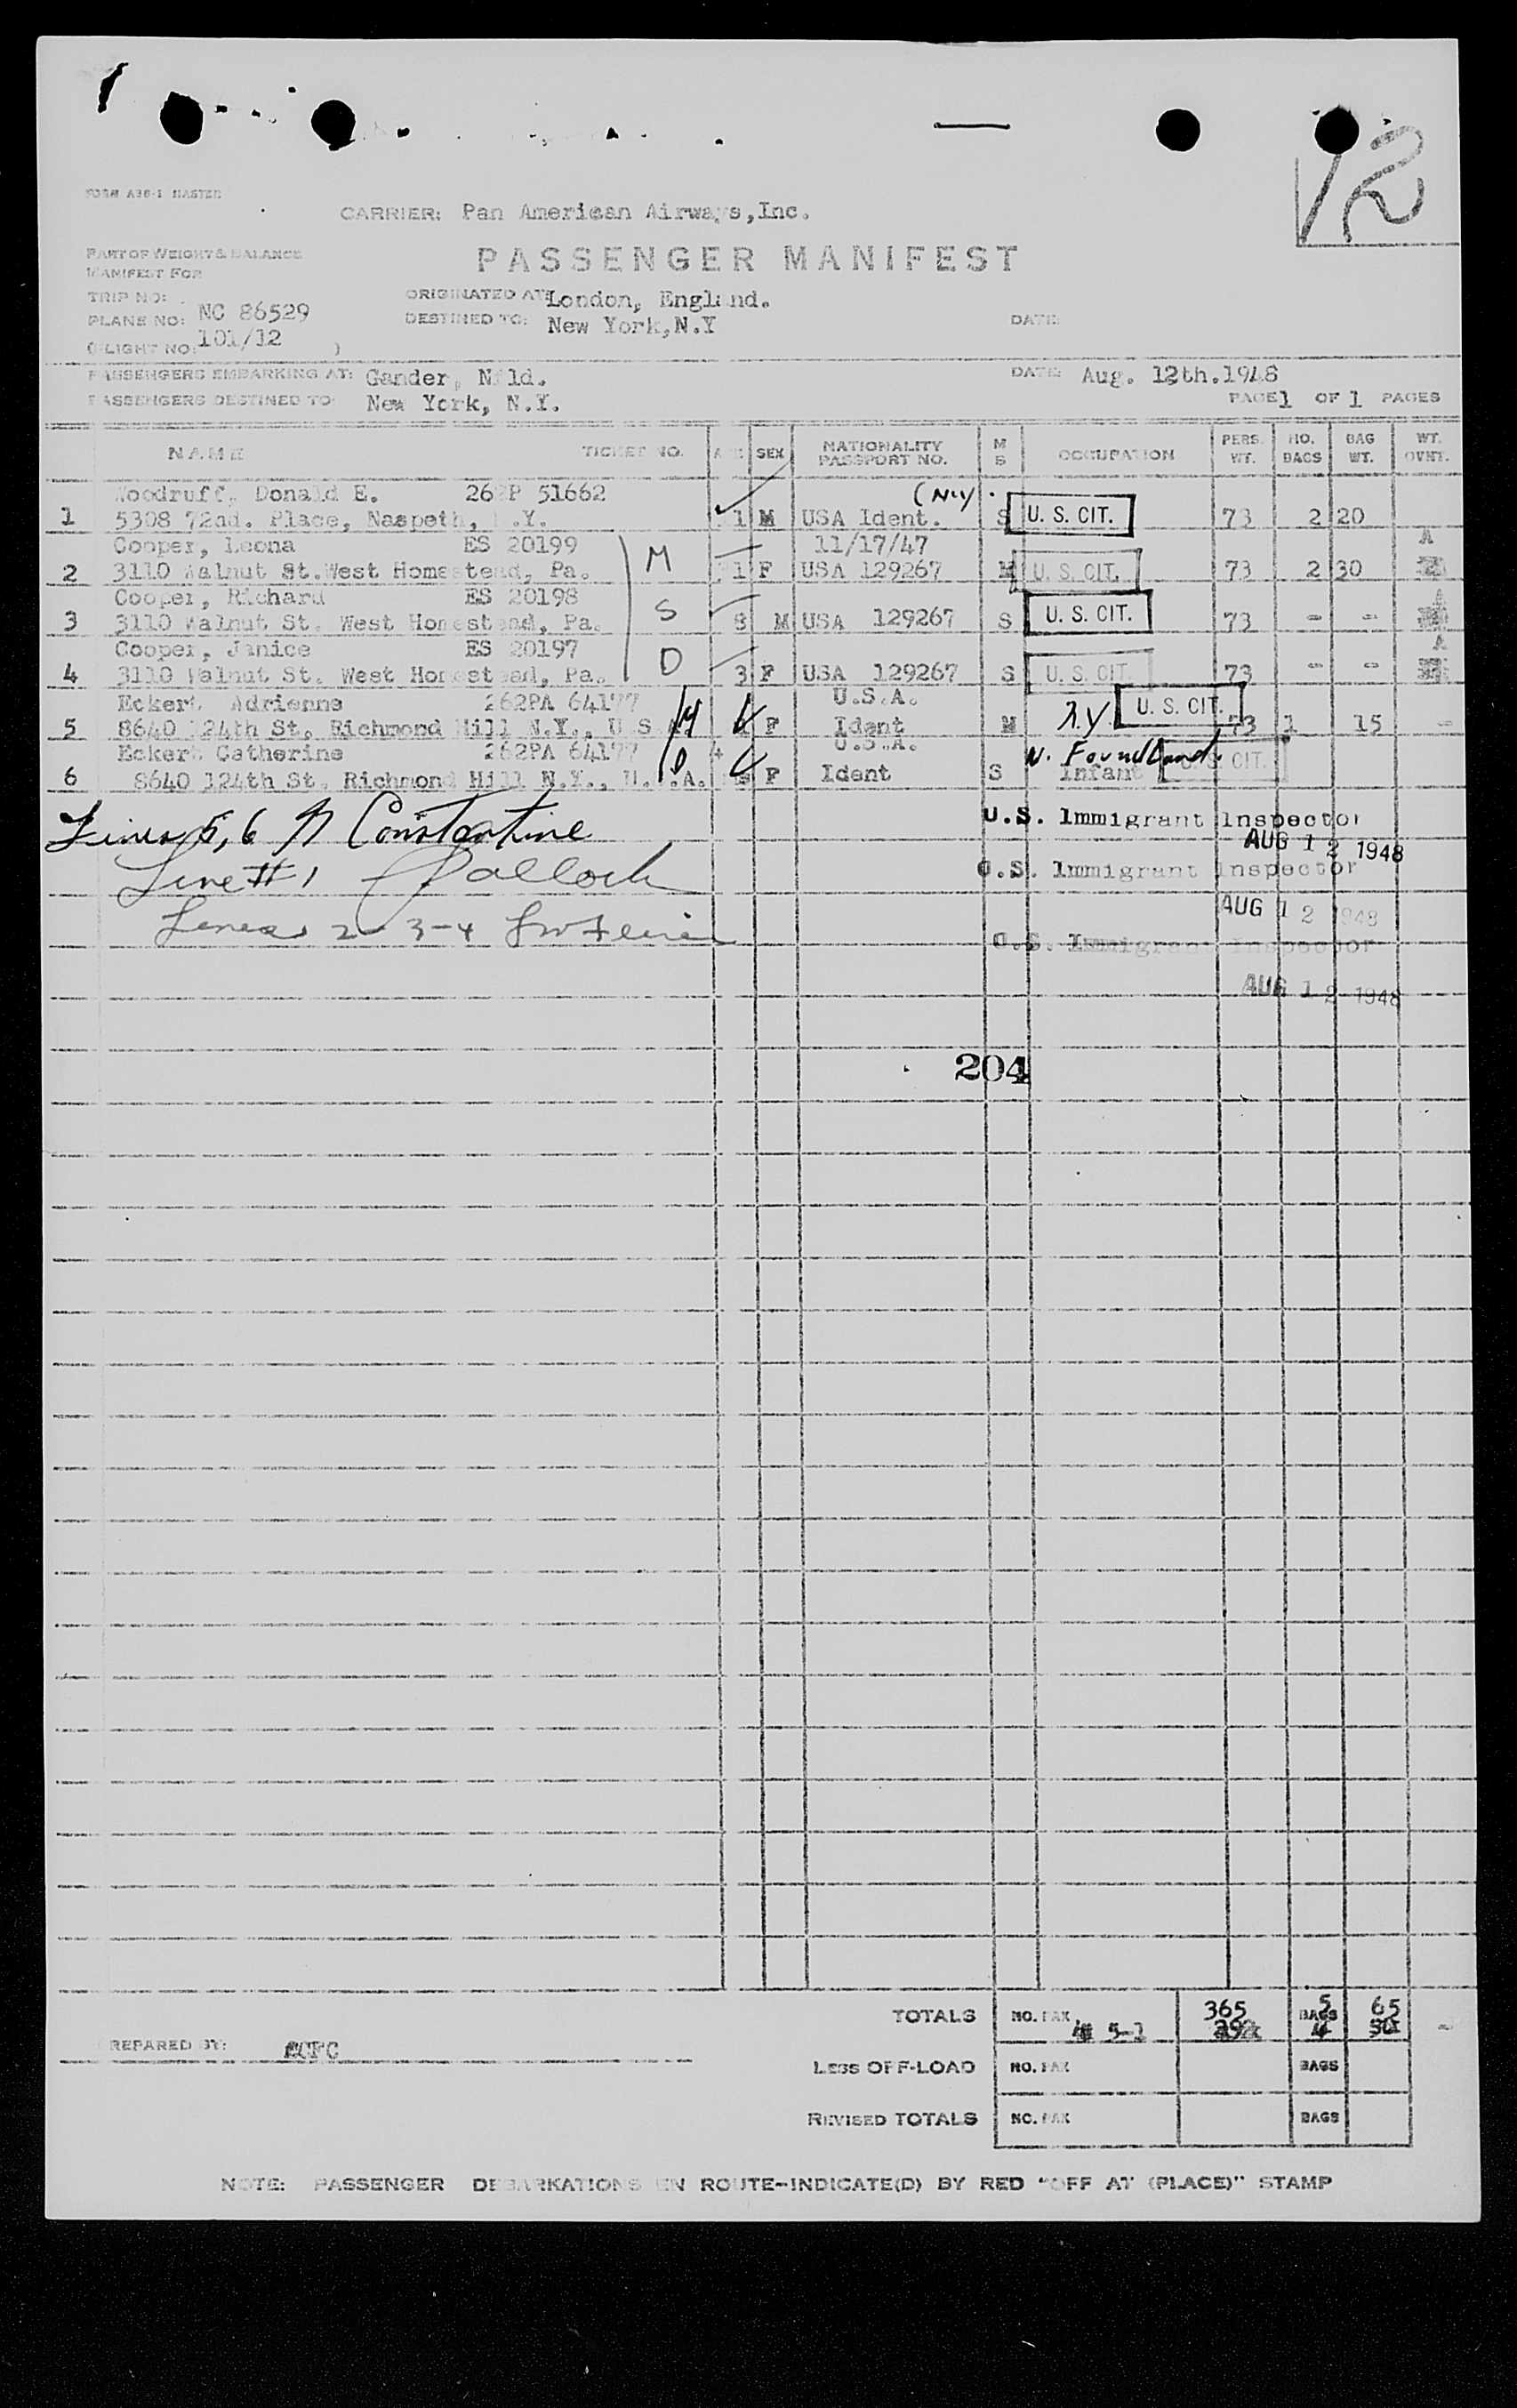 12
FORM A36-1 MASTER
CARRIER: Pan American Airways, Inc.
PART OF WEIGHT & BALANCE
MANIFEST FOR
PASSENGER MANIFEST
TRIP NO:
ORIGINATED AT: London, England.
PLANE NO: NC 86529
DESTINED TO: New York, N.Y
DATE:
(FLIGHT NO: 101/12 )
PASSENGERS EMBARKING AT: Gander, Nfld.
DATE: Aug. 12th. 1948
PASSENGERS DESTINED TO New York, N.Y.
PAGE 1 OF 1 PAGES
NAME TICKET NO. AGE SEX NATIONALITY PASSPORT NO. M S OCCUPATION PERS. WT. NO. BAGS BAG WT. WT. OVNT.
Woodruff, Donald E. 262P 51662 (N.Y)
1 5308 72nd. Place, Naspeth, N.Y. M USA Ident. S U. S. CIT. 73 2 20
Cooper, Leona ES 20199 M 11/17/47 A
2 3110 Walnut St. West Homestead, Pa. F USA 129267 M U. S. CIT. 73 2 30
Cooper, Richard ES 20198 S
3 3110 Walnut St. West Homestead, Pa. 8 M USA 129267 S U. S. CIT. 73 - -
Cooper, Janice ES 20197 D A
4 3110 Walnut St. West Homestead, Pa. 3 F USA 129267 S U. S. CIT. 73 - -
Eckert Adrienne 262PA 64177 M U.S.A.
5 8640 124th St, Richmond Hill N.Y., U S A F Ident M N.Y U. S. CIT. 73 1 15 -
Eckert Catherine 262PA 64177 D U.S.A. N. Foundland.
6 8640 124th St, Richmond Hill N.Y., U.S.A. F Ident S Infant U. S. CIT.
Lines 5, 6 N Constantine
U.S. Immigrant Inspector
AUG 12 1948
Line # 1 Pollock
U.S. Immigrant Inspector
AUG 12 1948
Lines 2-3-4
U.S. Immigrant Inspector
AUG 12 1948
204
TOTALS NO. PAX 5-1 365 5 BAGS 4 65 -
PREPARED BY:
LESS OFF-LOAD NO. PAX BAGS
REVISED TOTALS NO. PAX BAGS
NOTE: PASSENGER DEBARKATIONS EN ROUTE-INDICATE(D) BY RED "OFF AT (PLACE)" STAMP